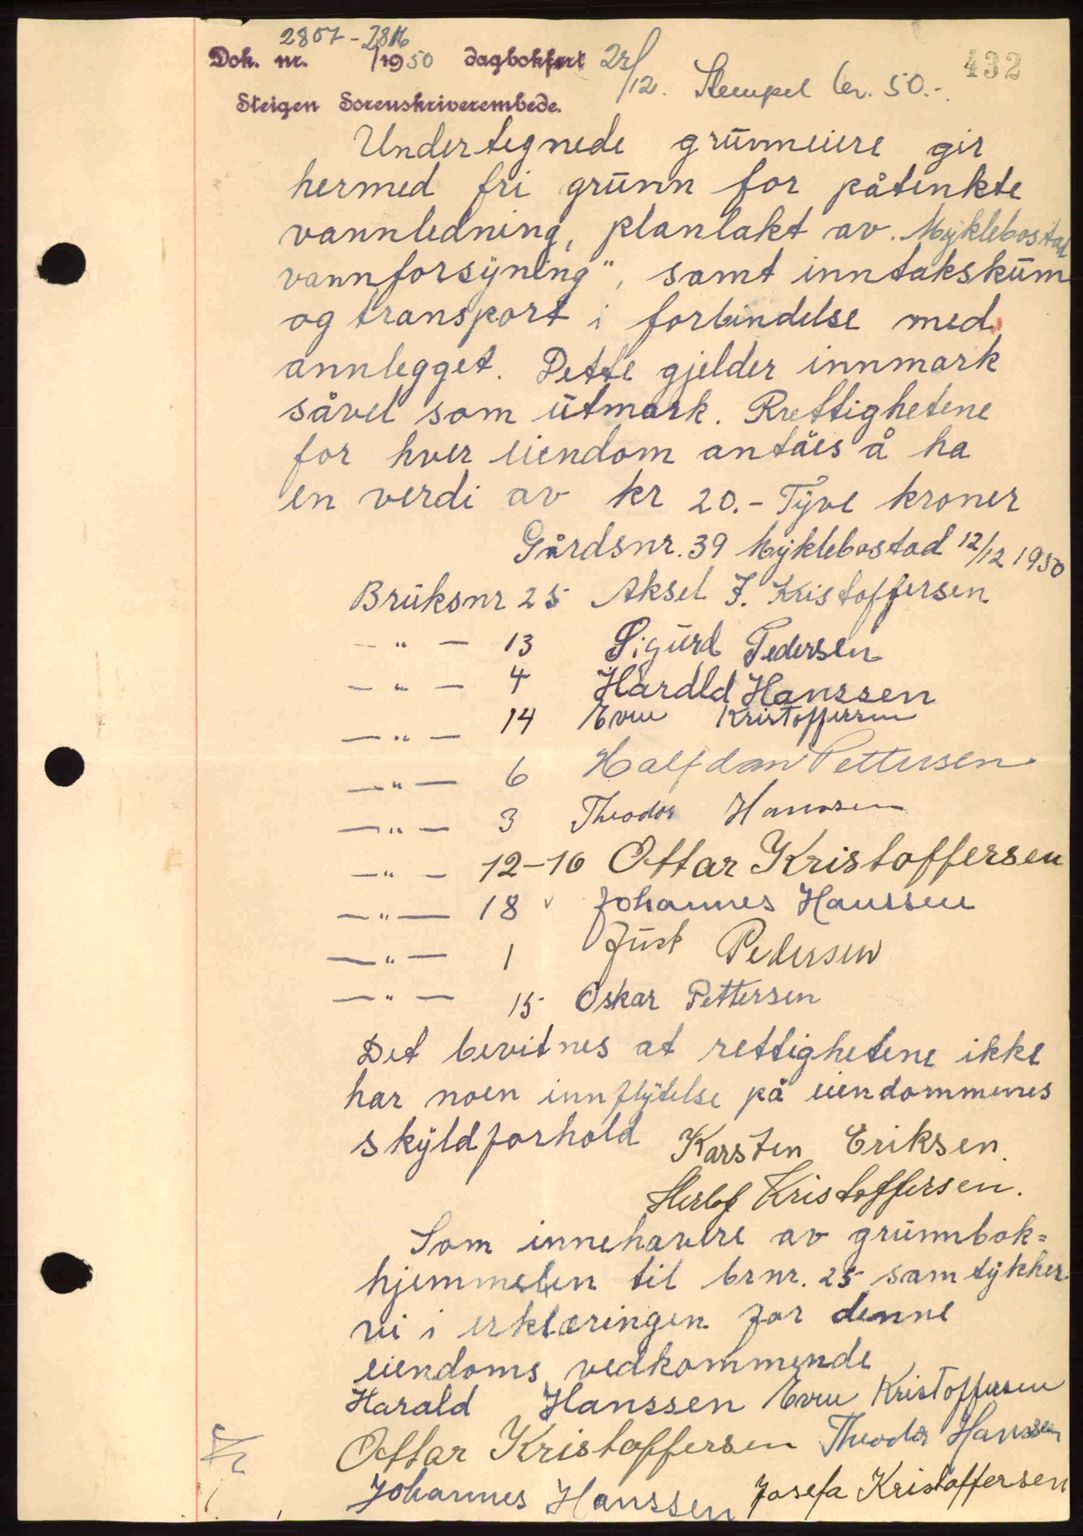 2807-2816
Dok. nr. /1950 dagbokført 22/12. Stempel kr. 50.-
432
Steigen Sorenskriverembede.
Undertegnede grunneiere gir
hermed fri grunn for påtenkte
vannledning, planlakt av „Myklebostad
vannforsyning", samt inntakskum
og transport i forbindelse med
annlegget. Dette gjelder innmark
såvel som utmark. Rrettighetene
for hver eiendom antaes å ha
en verdi av kr 20.- Tyve kroner
Gårdsnr. 39 Myklebostad 12/12 1950
Bruksnr 25 Aksel J. Kristoffersen
— " — 13 Sigurd Pedersen
— " — 4 Harald Hanssen
— " — 14 Even Kristoffersen
— " — 6 Halfdan Pettersen
— " — 3 Theodor Hanssen
— " — 12-16 Ottar Kristoffersen
— " — 18 Johannes Hanssen
— " — 1 Just Pedersen
— " — 15 Oskar Pettersen
Det bevitnes at rettighetene ikke
har noen innflytelse på eiendommenes
skyldforhold Karsten Eriksen.
Herlof Kristoffersen.
Som innehavere av grunnbok=
hjemmelen til brnr. 25 samtykker
vi i erklæringen for denne
eiendoms vedkommende
Harald Hanssen Even Kristoffersen
Ottar Kristoffersen Theodor Hanssen
Johannes Hanssen Josefa Kristoffersen